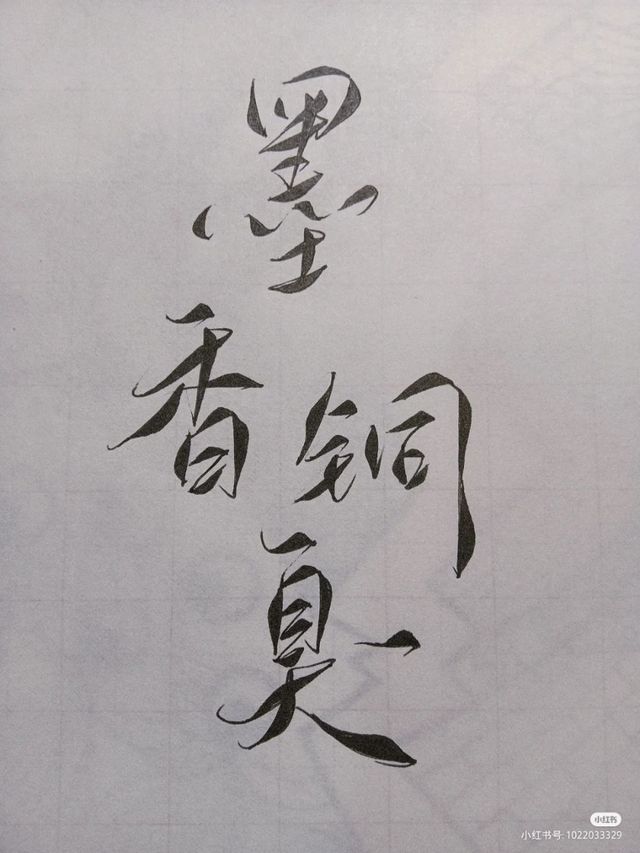 墨
香铜
臭
小红书
小红书号: 1022033329